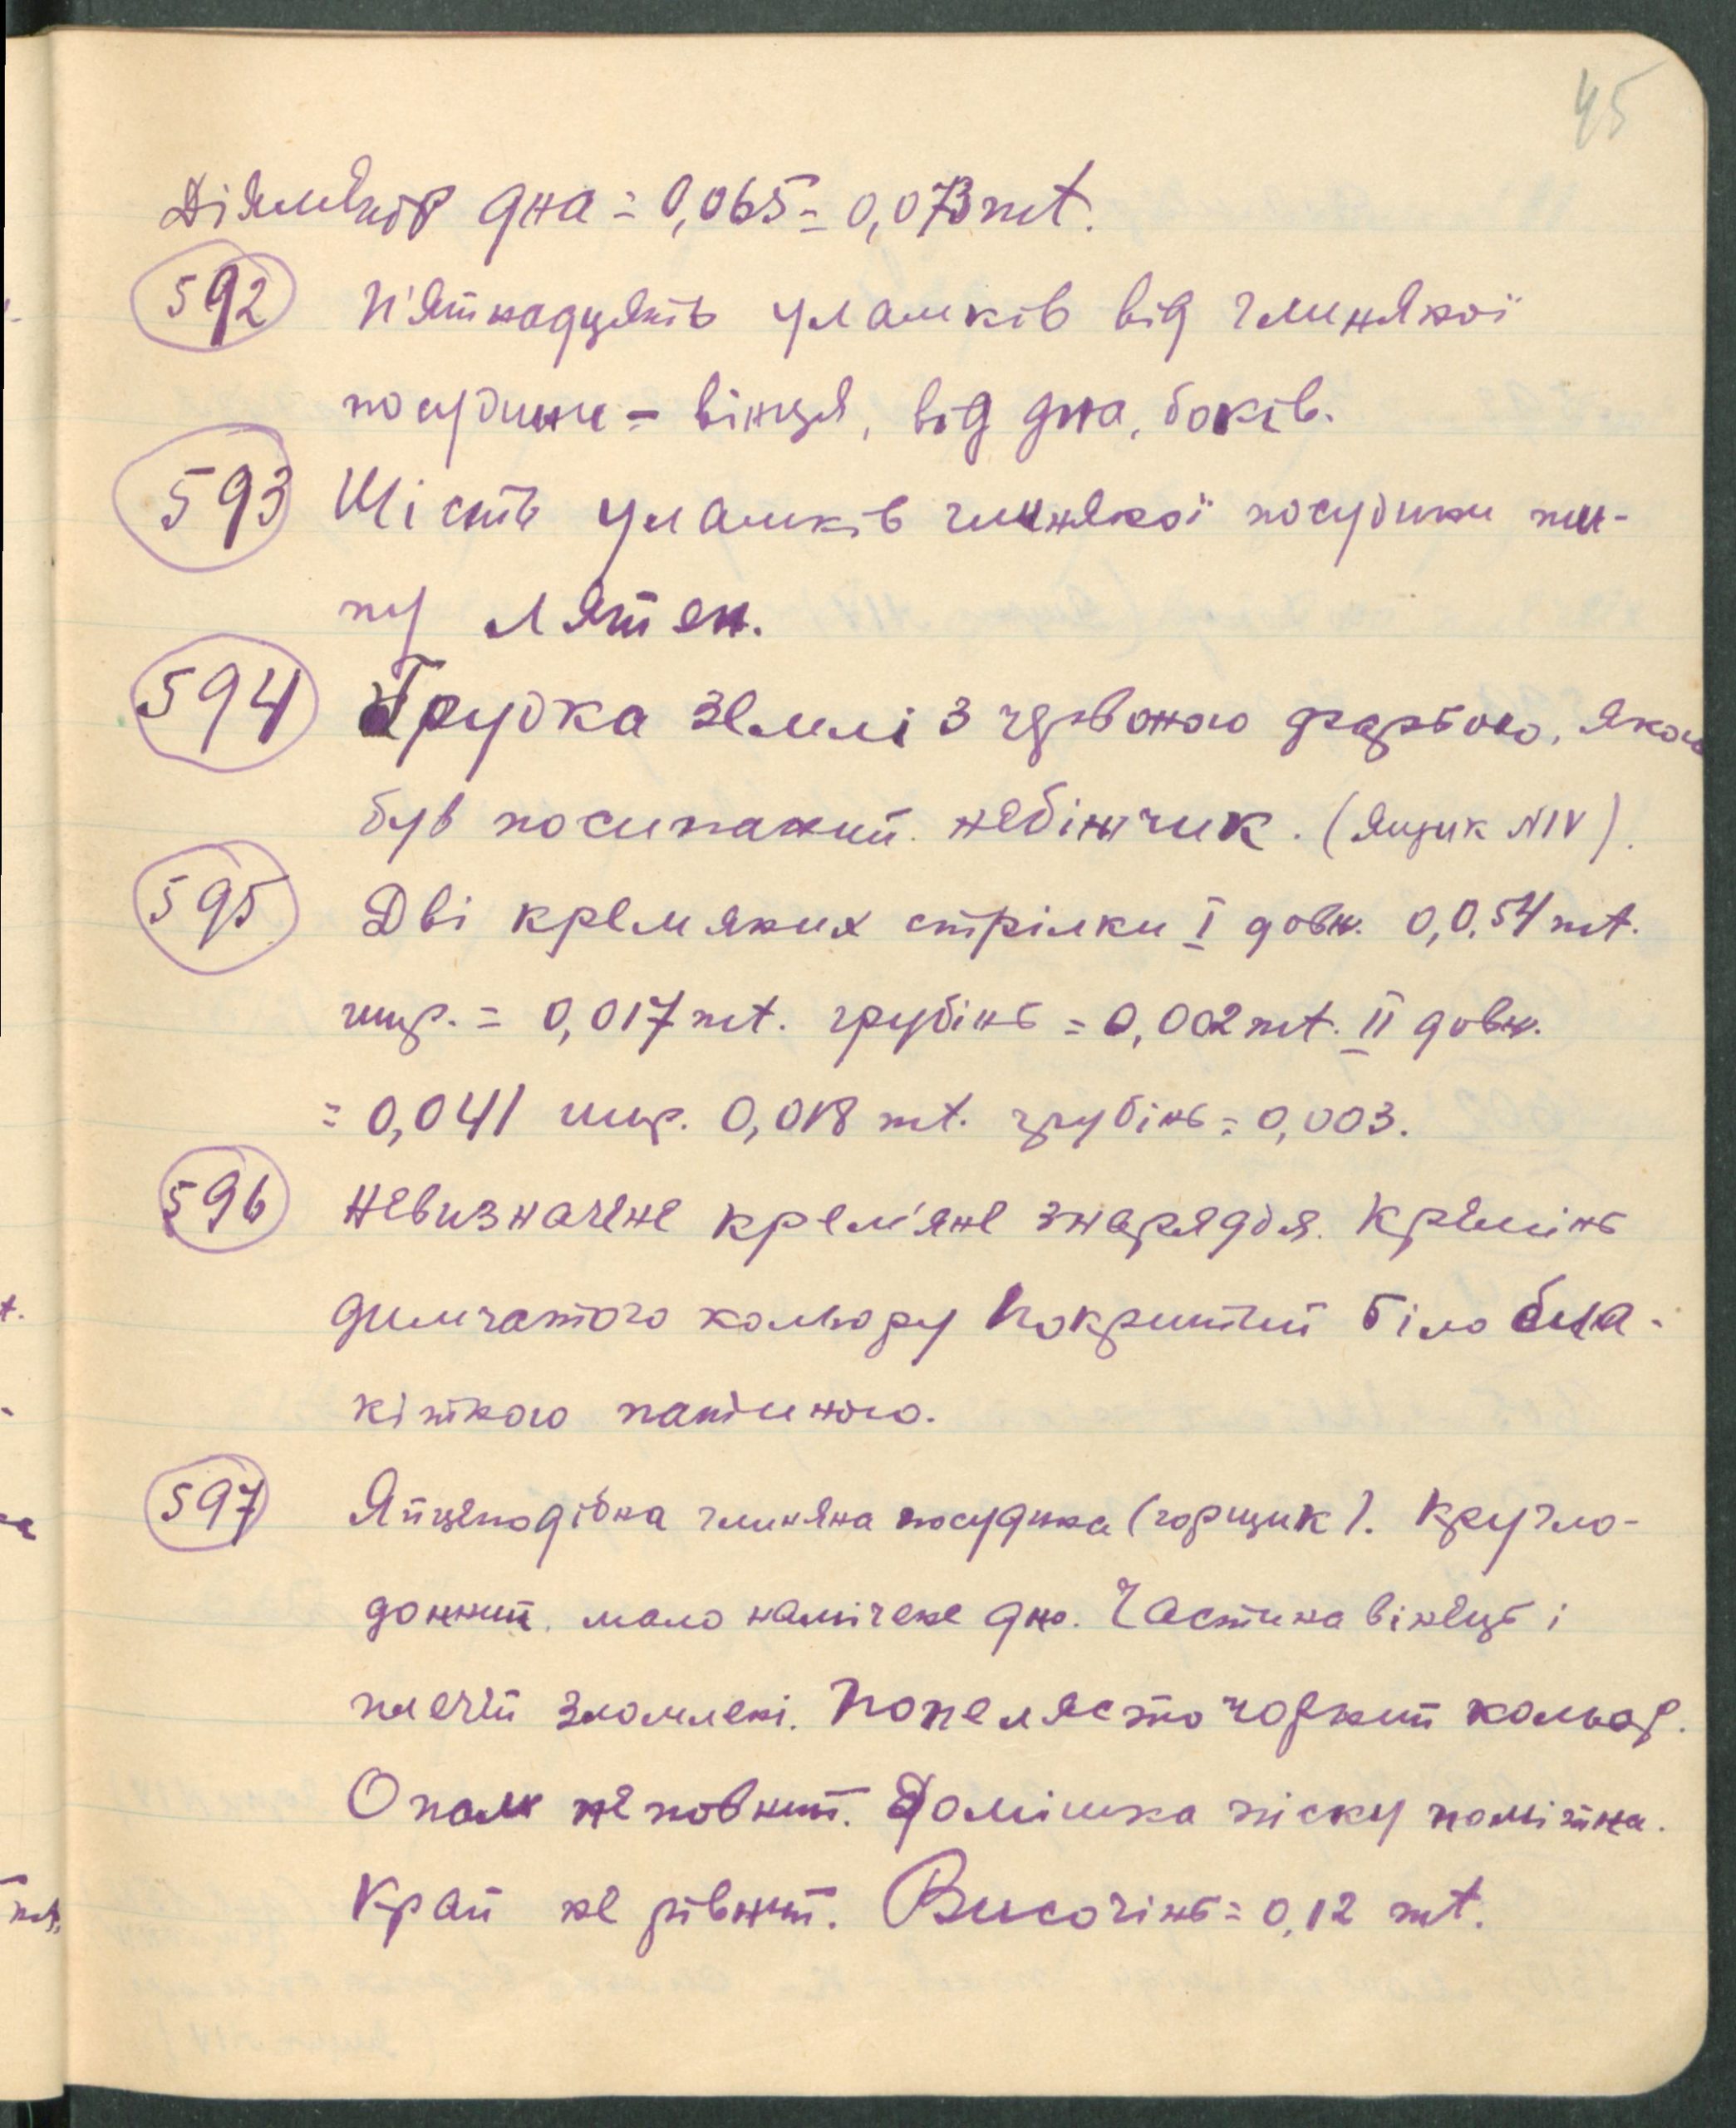 45
Діяметр дна = 0,065 = 0,073 mt.
592 П'ятнадцять уламків від глиняної
посудини – вінця, від дна, боків.
593 Шість уламків глиняної посудини ти-
пу лятен.
594 Грудка землі з червоною фарбою, якою
був посипаний небіжчик. (Ящик N IV).
595 Дві кремяних стрілки I довж. 0,0,54 mt.
шир. = 0,017 mt. грубінь = 0,002 mt. II довж.
= 0,041 шир. 0,018 mt. грубінь = 0,003.
596 Невизначене крем'яне знаряддя. Кремінь
димчатого кольору покритий біло бла-
кітною патиною.
597 Яйцеподібна глиняна посудина (горщик). Кругло-
донний, мало намічене дно. Частина вінець і
плечій зломлені. Попелясто чорний кольор.
Опал не повний. Домішка піску помітна.
Край не рівний. Височінь = 0,12 mt.